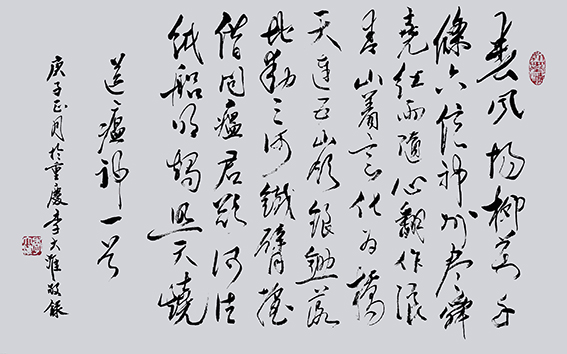 春風楊柳萬千
條六億神州盡舜
堯紅雨隨心翻作浪
青山着意化為橋
天連五嶺銀鋤落
地動三河鐵臂搖
借問瘟君欲何往
紙船明燭照天燒
送瘟神一首
庚子正月於重慶李大敬錄